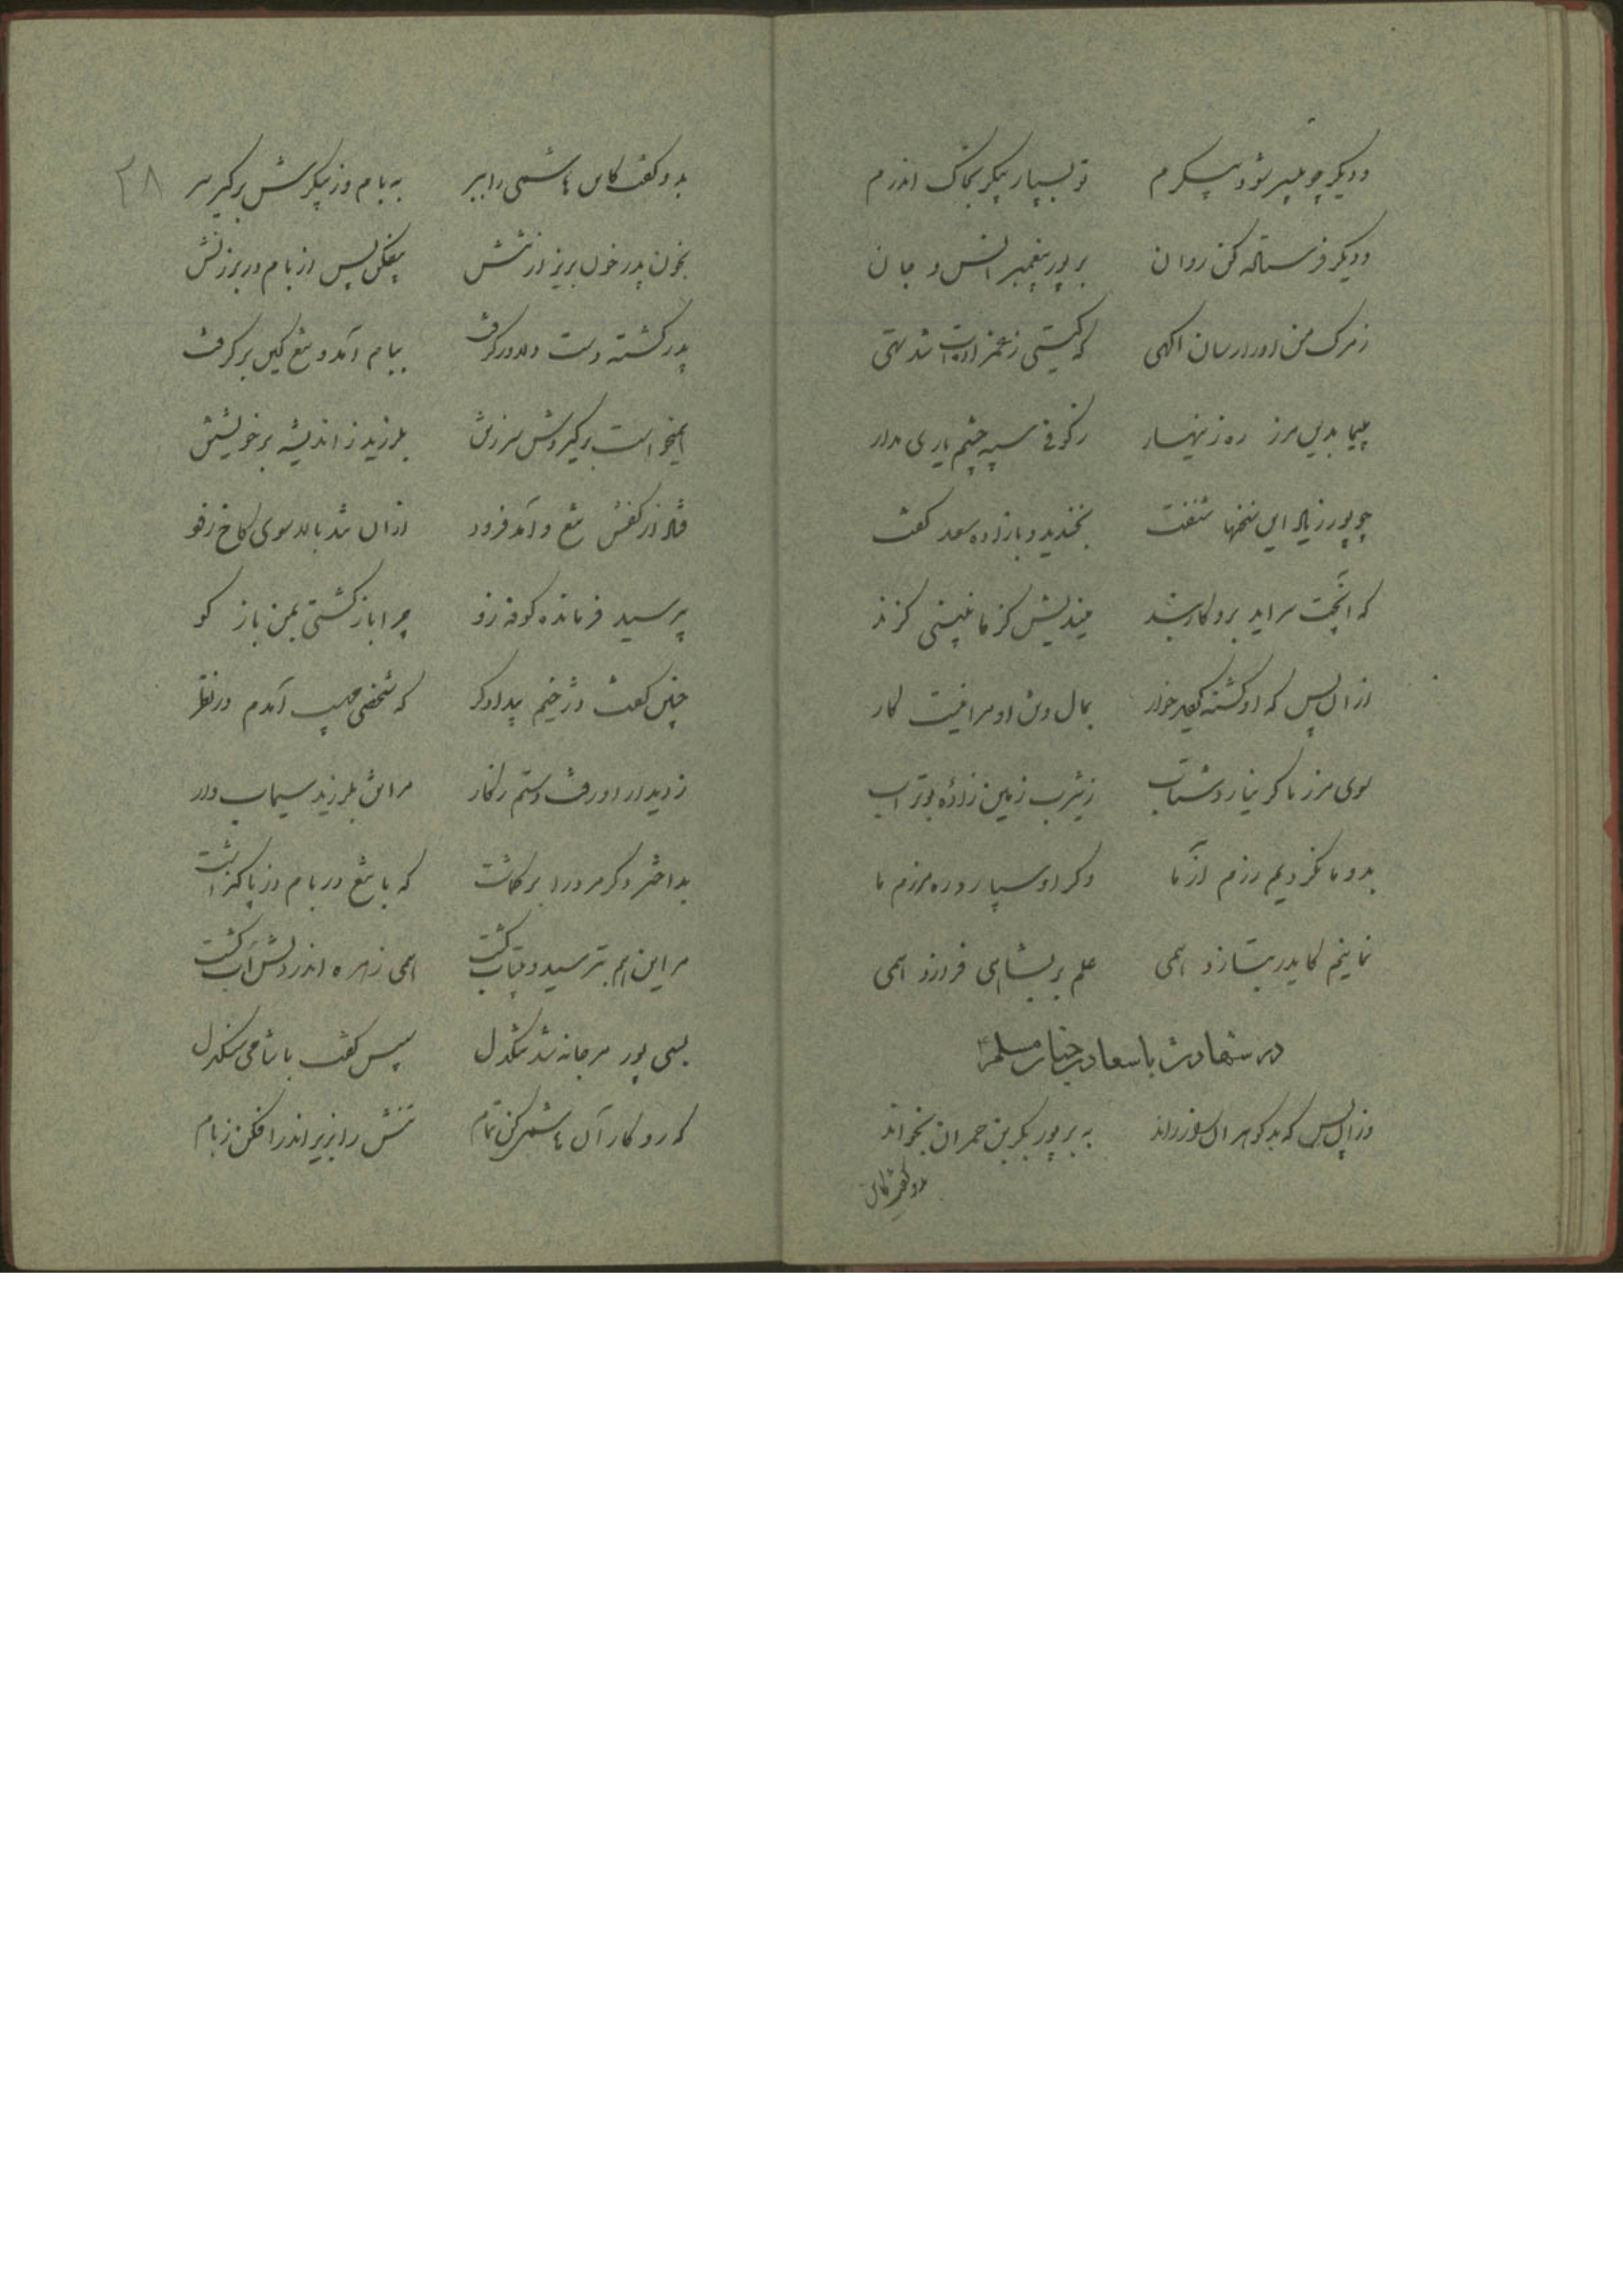 ودیگر چو بی‌سر شود پیکرم تو بسپار پیکر بخاک اندرم
ودیگر فرستاده کن روان بر پور پیغمبر انس و جان
ز مرگ من اورا رسان اگهی که گیتی ز عمزادت شد تهی
مپیما بدین مرز ره زینهار ز کوفی سیه چشم یاری مدار
چو پور زیاد این سخنها شنفت بخندید و با زاده سعد گفت
که انچت سراید برو کاربند میندیش کز ما نبینی گزند
ازان پس که او کشته گردید خوار بمال وتن او مرا نیست کار
سوی مرز ما گر نیارد شتاب ز یثرب زمین زادهٔ بوتراب
بدو ما نگردیم رزم آزما وگر او سپارد ره مرز ما
نمانیم کاید بتازد همی علم بر بشاهی فرازد همی
در شهادت باسعادت جناب مسلم
وزان پس که بدگوهر ان سفر راند به بر پور بکر بن حمران بخواند
بدو گفت کاین
۲۸
بدو گفت کاین هاشمی را ببر به بام وز پیکرش برگیر سر
بخون پدر خون بریز از تنش بیفکن پس از بام در برزنش
پدر کشته دست دلاور گرفت ببام آمد و تیغ کین برگرفت
همیخواست برگیردش سر ز تن بلرزید ز اندیشه بر خویشتن
فتاد از کفش تیغ و آمد فرود ازان شد بالا سوی کاخ زود
بپرسید فرمانده کوفه زو چرا باز گشتی بمن باز گو
چنین گفت دژخیم بیدادگر که شخصی مهیب آمدم در نظر
ز دیدار او رفت دستم ز کار مرا تن بلرزید سیماب وار
بداختر دگر مرد را برگماشت که با تیغ در بام دژ پا گذاشت
مر این هم بترسید و بیتاب گشت همی زهره اندر دلش آب گشت
بسی پور مرجانه شد تنگدل سپس گفت با شامی سنگدل
که رو کار آن هاشمی کن تمام تنش را بزیر اندر افکن ز بام